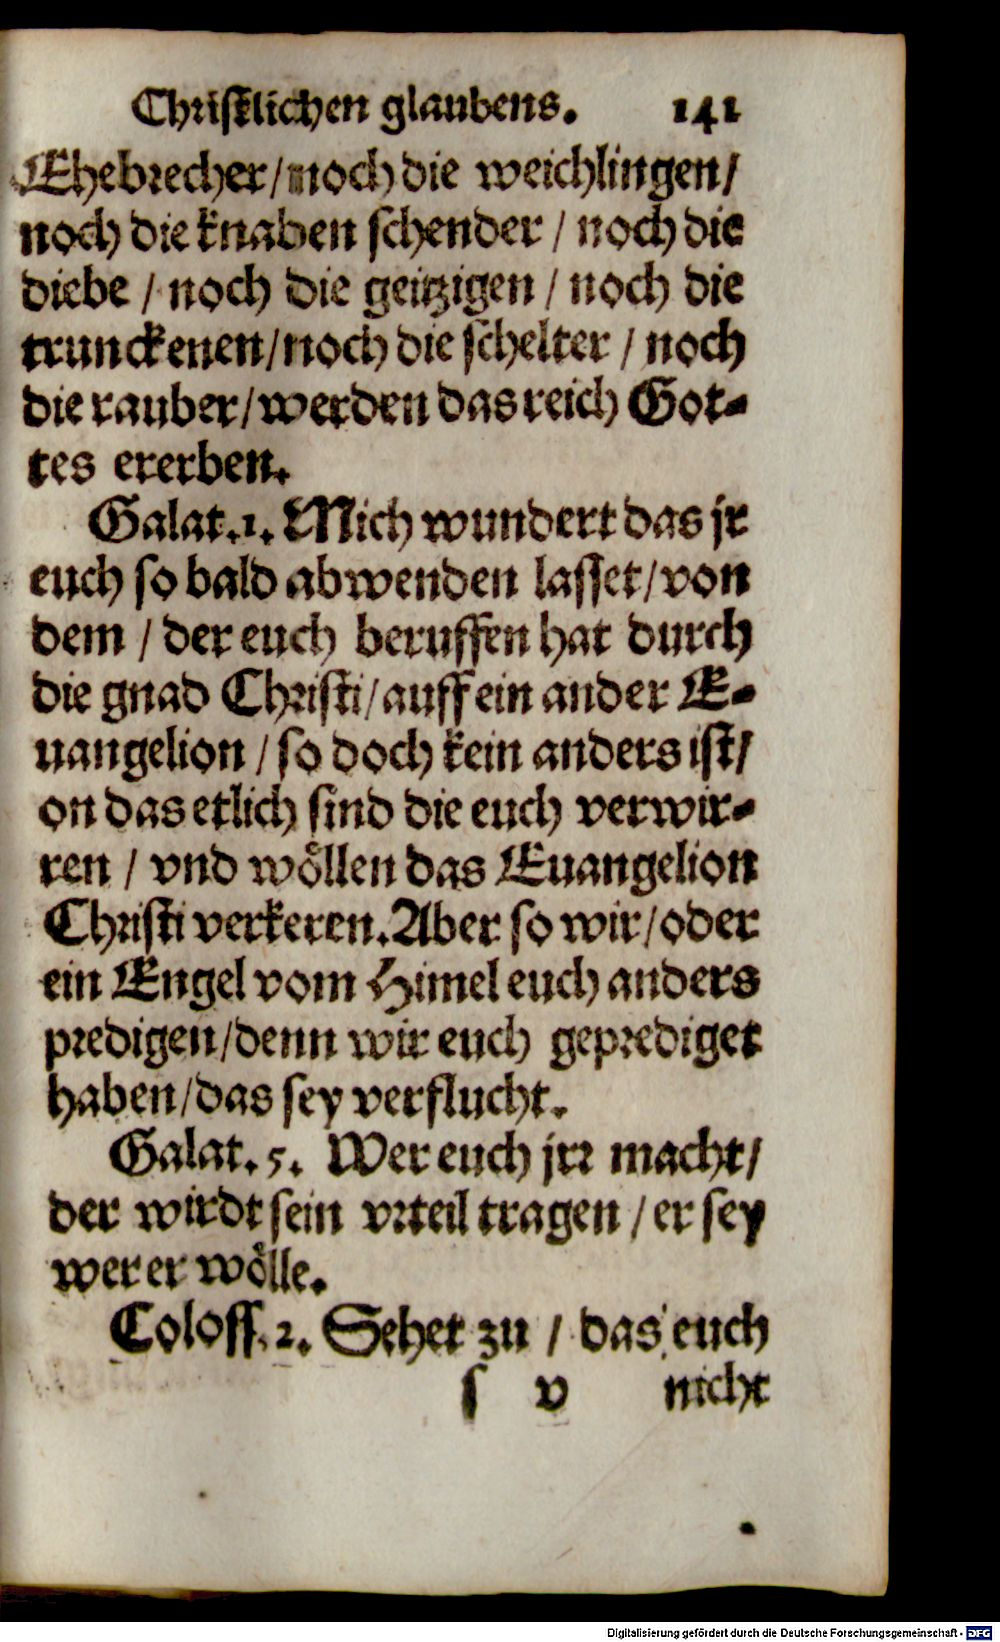 Christlichen glaubens. 141
Ehebrecher/ noch die weichlingen/
noch die knaben schender / noch die
diebe / noch die geitzigen / noch die
trunckenen/ noch die schelter / noch
die rauber/ werden das reich Got-
tes ererben.
Galat.1. Mich wundert das jr
euch so bald abwenden lasset/ von
dem / der euch beruffen hat durch
die gnad Christi/ auff ein ander E-
uangelion / so doch kein anders ist/
on das etlich sind die euch verwir-
ren / vnd wöllen das Euangelion
Christi verkeren. Aber so wir/ oder
ein Engel vom Himel euch anders
predigen/ denn wir euch geprediget
haben/ das sey verflucht.
Galat. 5. Wer euch jrr macht/
der wirdt sein vrteil tragen / er sey
wer er wölle.
Coloss. 2. Sehet zu / das euch
s v nicht
Digitalisierung gefördert durch die Deutsche Forschungsgemeinschaft - DFG